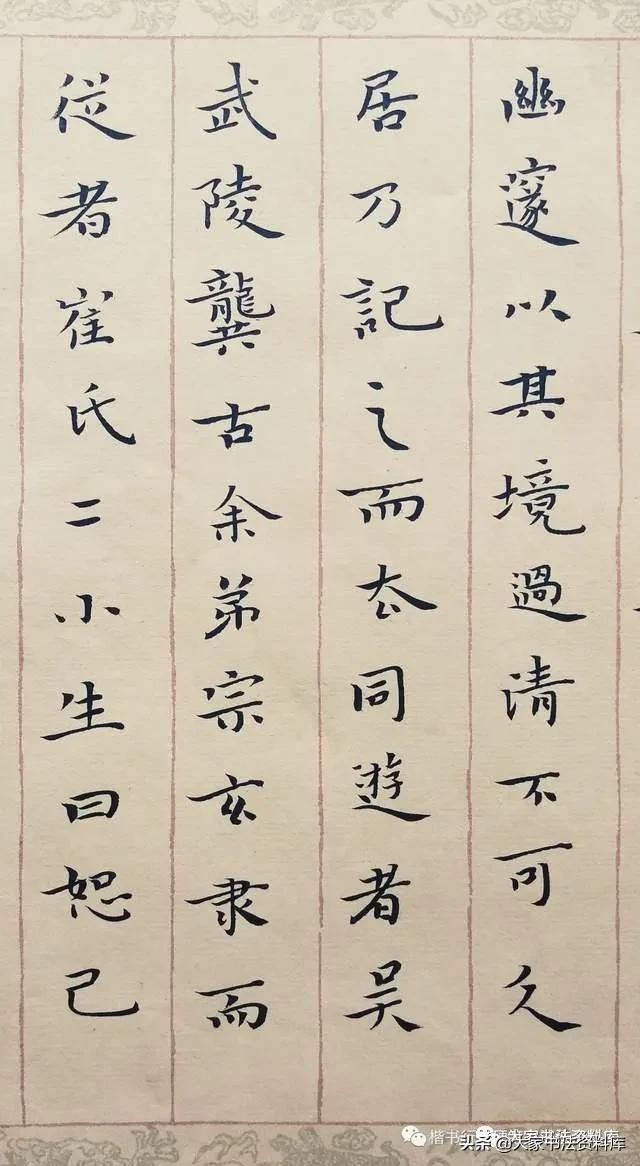 幽邃以其境過清不可久
居乃記之而去同遊者吴
武陵龔古余弟宗玄隶而
從者崔氏二小生曰恕己
头条@大家书法资料库